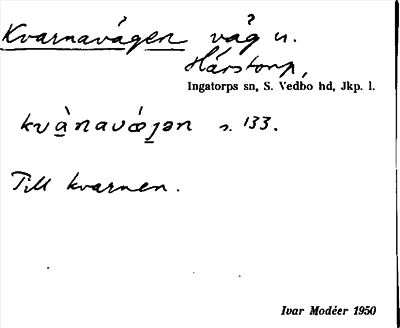 Kvarnavägen väg u.
Hårstorp,
Ingatorps sn, S. Vedbo hd, Jkp. l.
kvànavǽjən s. 133.
Till kvarnen.
Ivar Modéer 1950